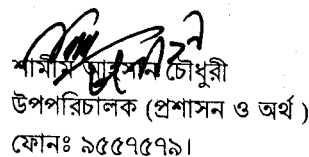 শামীম আহসান চৌধুরী
উপপরিচালক (প্রশাসন ও অর্থ )
ফোনঃ ৯৫৫৭৫৭৯।